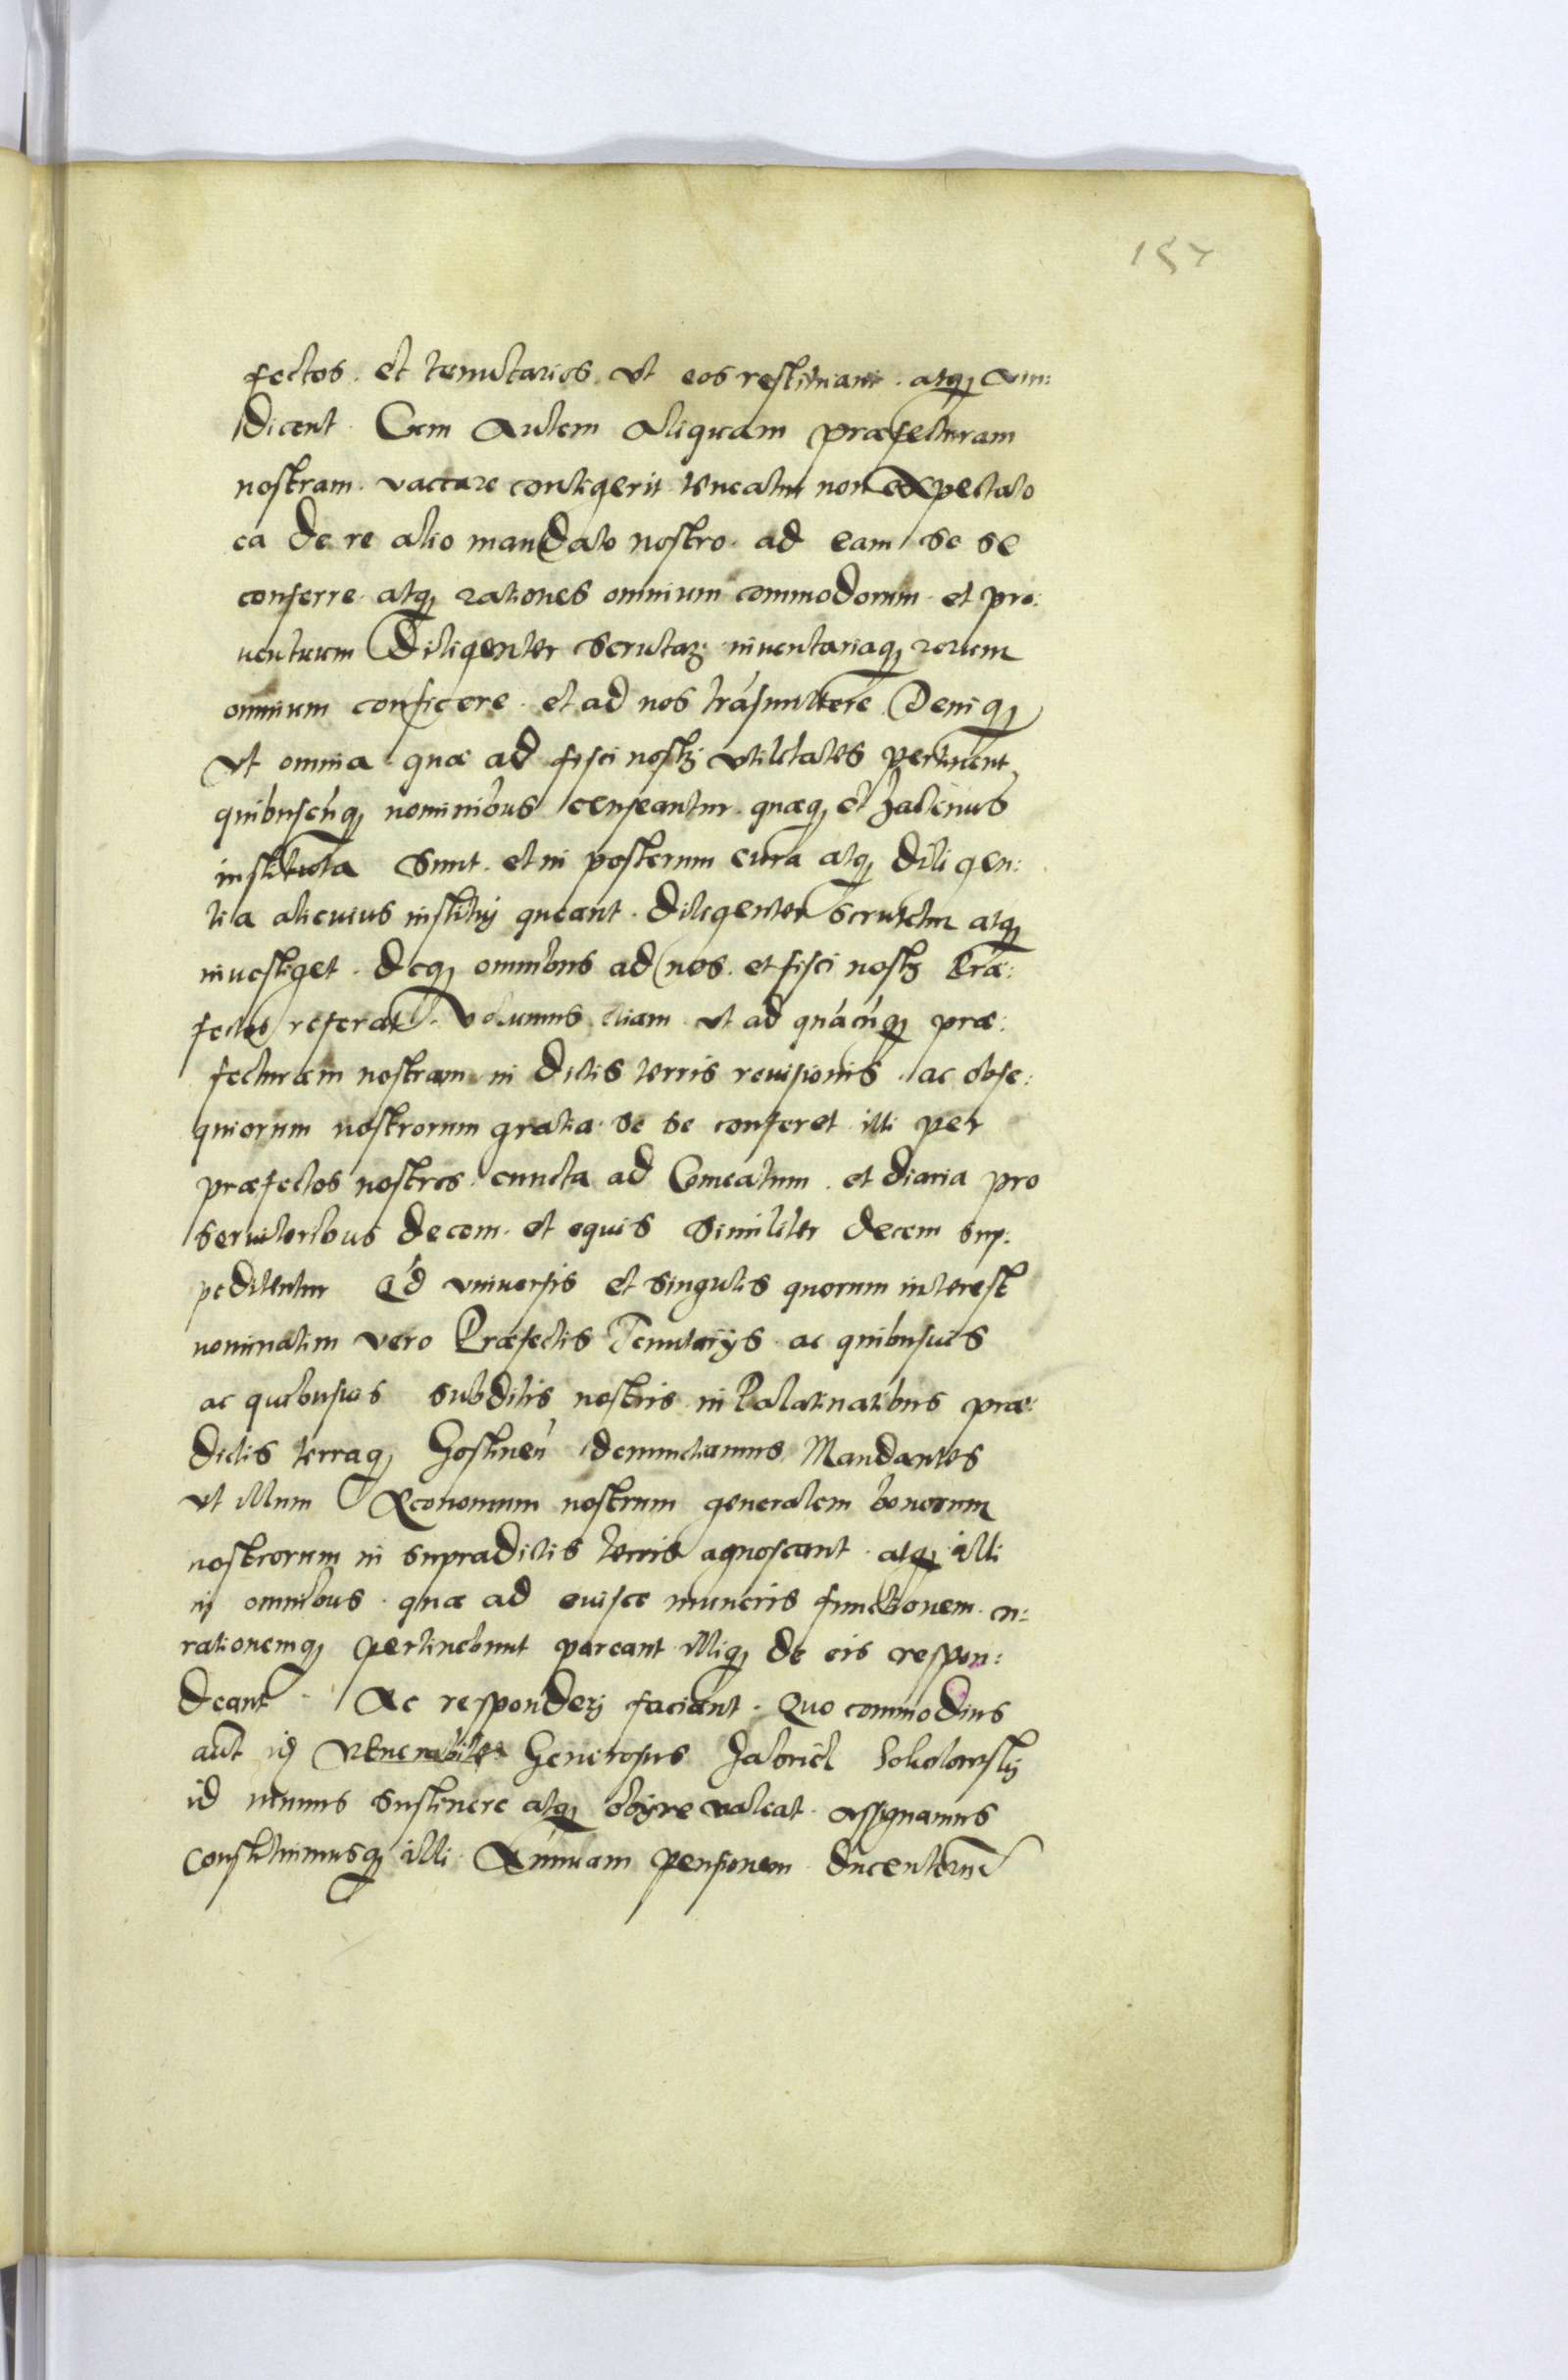 157
fectos. et tenutarios. vt eos restituant. atq₃ vin:
dicent. Cum autem aliquam præfecturam
nostram. vaccare contigerit teneatur non expectato
ea de re alio mandato nostro. ad eam se se
conferre. atq₃ rationes omnium commodorum. et pro:
uentuum diligenter scrutarj inuentariaq₃ rerum
omnium conficere. et ad nos trāsmittere Deniq₃
vt omnia quæ ad fisci nostrj vtilitates pertinent
quibuscūq₃ nominibus censeantur. quæq₃ et hactenus
instituta sunt. et in posterum cura atq₃ diligen:
tia alicuius institui queant. diligenter scrutetur atq₃
inuestiget. deq₃ omnibus ad nos. et fisci nostrj Præ:
fectos referat. Volumus etiam vt ad quācūq₃ præ:
fecturam nostram in dictis terris reuisionis. ac obse:
quiorum nostrorum gratia. se se conferet illi per
præfectos nostros. cuncta ad Comeatum. et diaria pro
seruitoribus decem. et equis similiter decem sup:
peditentur Qd vniuersis et singulis quorum interest
nominatim vero Præfectis Tenutarijs. ac quibusuis
ac quibusuis subditis nostris in Palatinatibus præ:
dictis terraq₃ Gostinen̄ denunctiamus Mandantes
vt illum Œconomum nostrum generalem bonorum
nostrorum in supradictis terris agnoscant. atq₃ illi
in omnibus. quæ ad euisce muneris functionem. cu:
rationemq₃ pertinebunt pareant illiq₃ de eis respon:
deant Ac responderj faciant. Quo commodius
aut̄ is Venerabilis Generosus Gabriel Sokolowskj
id munus sustinere atq₃ obijre valeat. assignamus
constituimusq₃ illi Annuam pensionem ducentorum